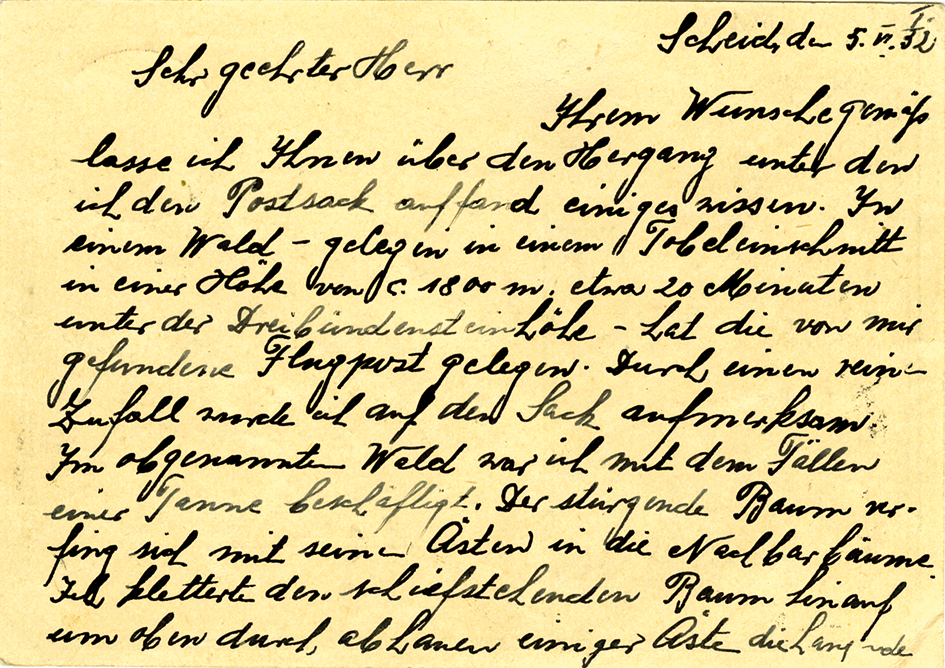 Scheid, den 5. VI. 32
I.
Sehr geehrter Herr
Ihrem Wunsche gemäß
lasse ich Ihnen über den Hergang unter den
ich den Postsack auffand einiges wissen. In
einem Wald – gelegen in einem Tobeleinschnitt
in einer Höhe von c. 1800 m. etwa 20 Minuten
unter der Dreibündensteinhöhe – hat die von mir
gefundene Flugpost gelegen. Durch einen rein-
Zufall wurde ich auf den Sack aufmerksam.
Im obgenannten Wald war ich mit dem Fällen
einer Tanne beschäftigt. Der stürzende Baum ver-
fing sich mit seinen Ästen in die Nachbarbäume.
Ich kletterte den schiefstehenden Baum hinauf
um oben durch abhauen einiger Äste die hängende